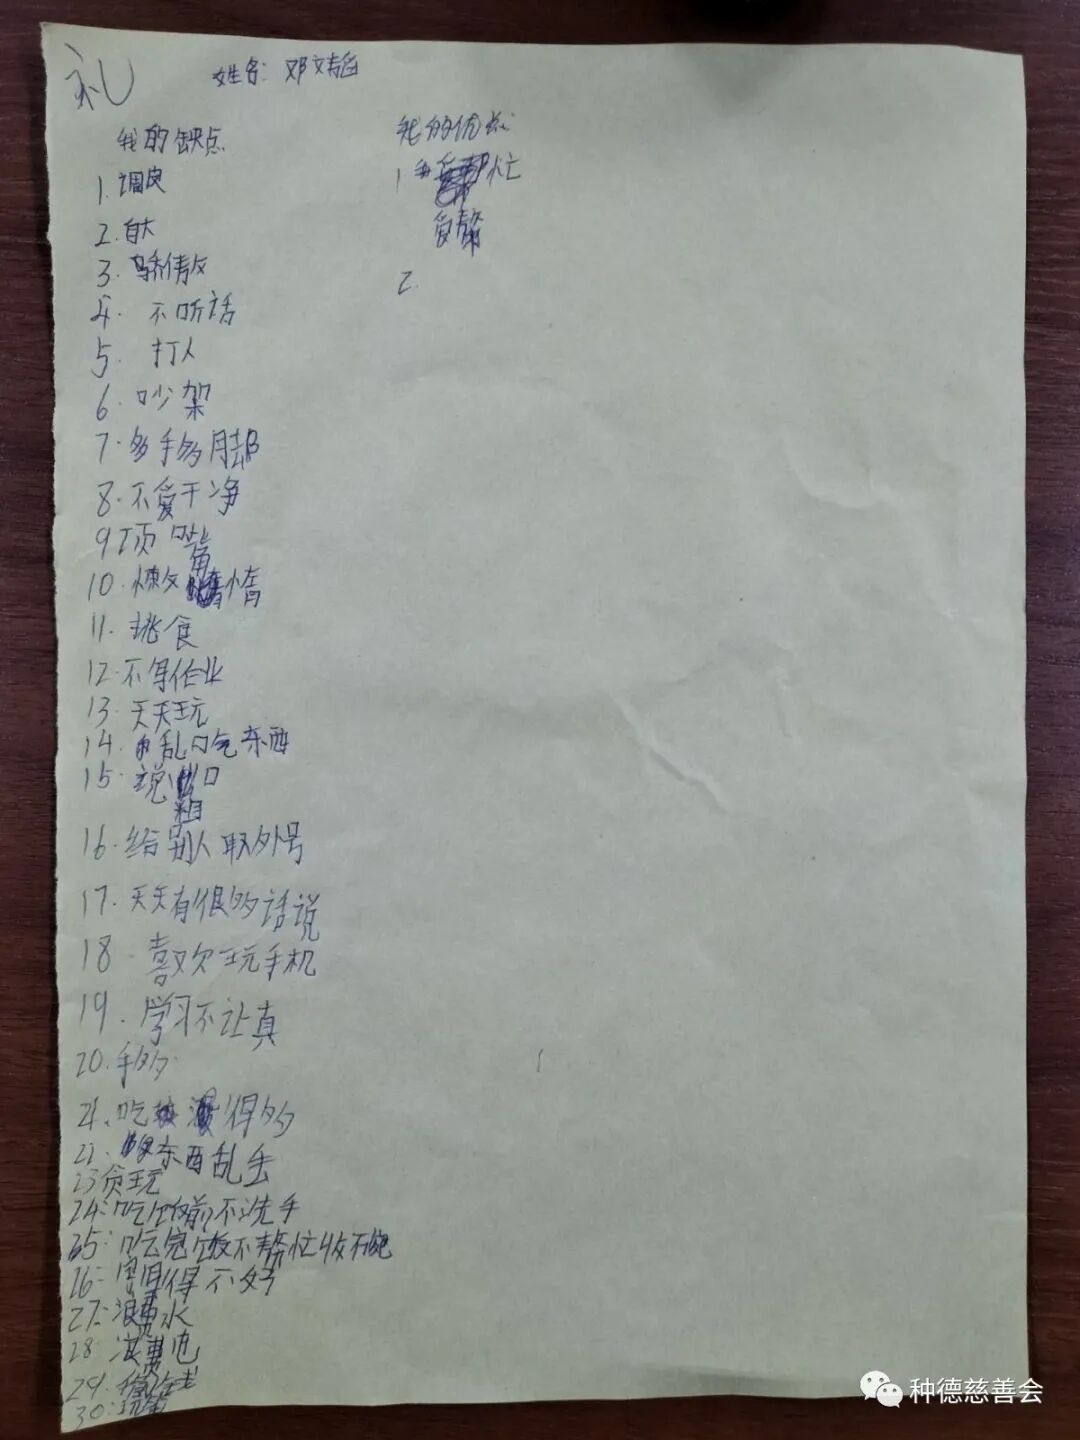 礼
姓名: 邓文韬
我的缺点
1. 调皮
2. 自大
3. 骄傲
4. 不听话
5. 打人
6. 吵架
7. 多手多脚
8. 不爱干净
9 顶嘴
10. 懒惰
11. 挑食
12. 不写作业
13. 天天玩
14. 乱吃东西
15. 说粗口
16. 给别人取外号
17. 天天有很多话说
18. 喜欢玩手机
19. 学习不认真
20. 手多
21. 吃得多
22. 东西乱丢
23 贪玩
24. 吃饭前不洗手
25. 吃完饭不帮忙收碗
26. 得不好
27. 浪费水
28. 浪费电
29.
30.
我的优点
1 爱帮忙
2.
种德慈善会